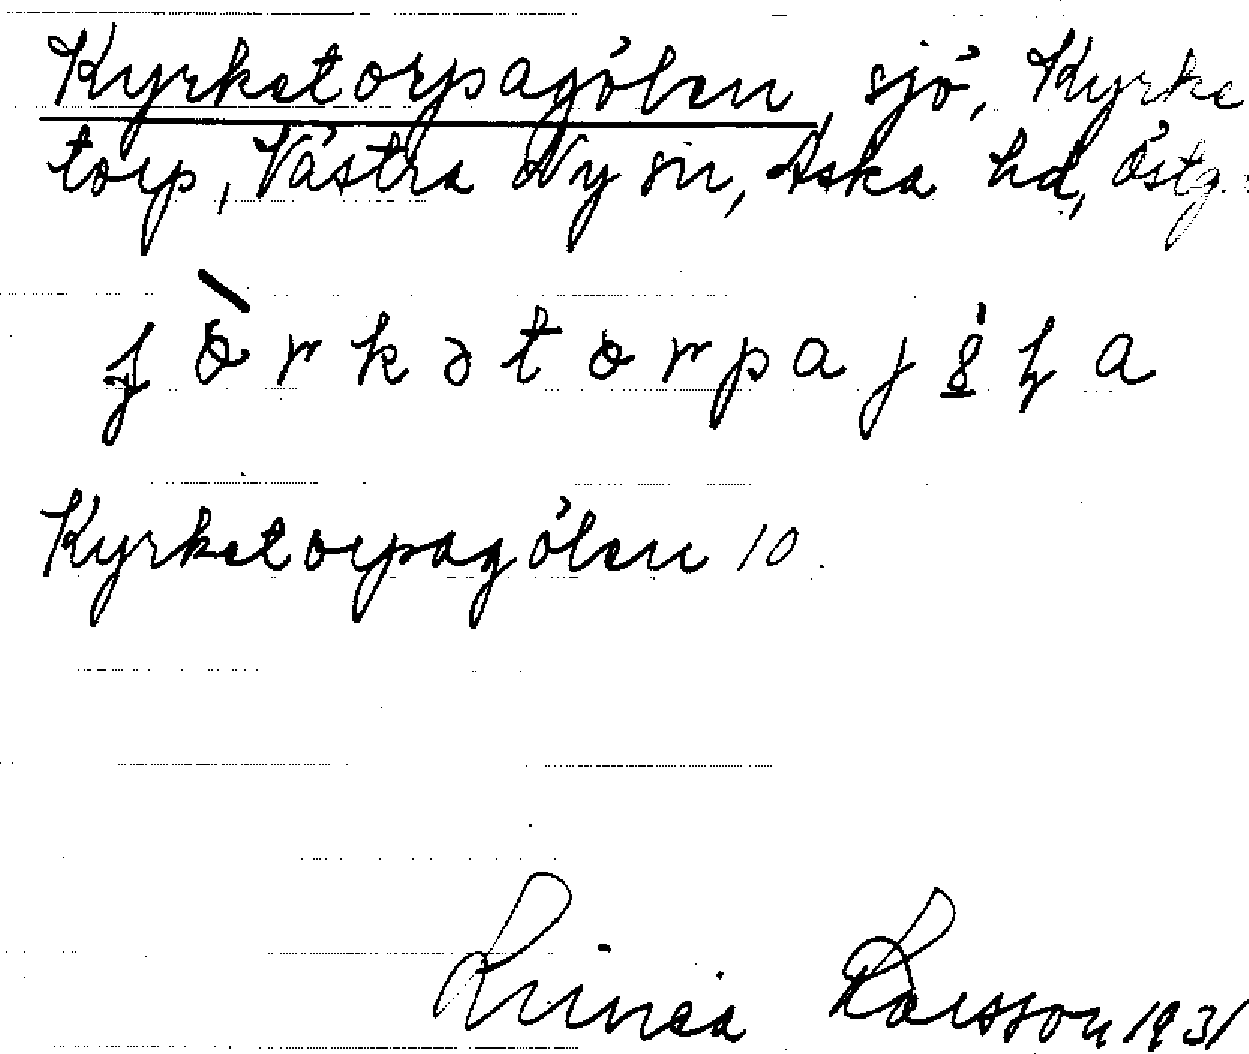 Kyrketorpagölen, sjö, Kyrke
torp, Västra Ny sn, Aska hd, Östg.
Kyrketorpagölen 10.
Linnéa Karsson 1931